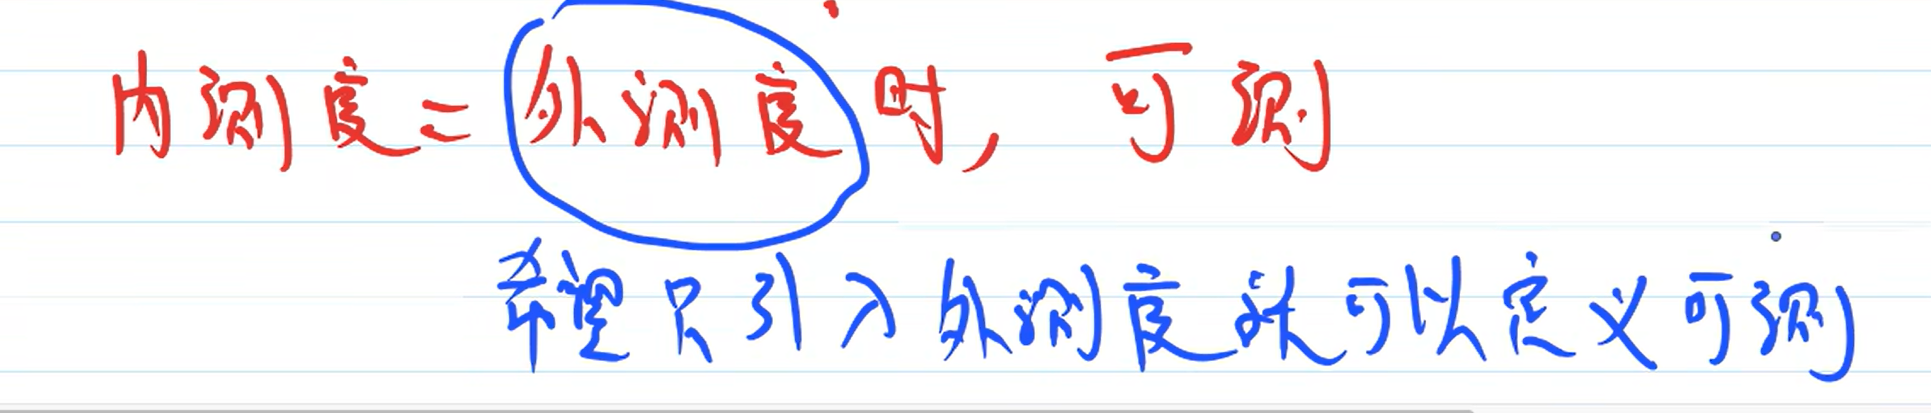 内测度=外测度时,可测
希望只引入外测度就可以定义可测